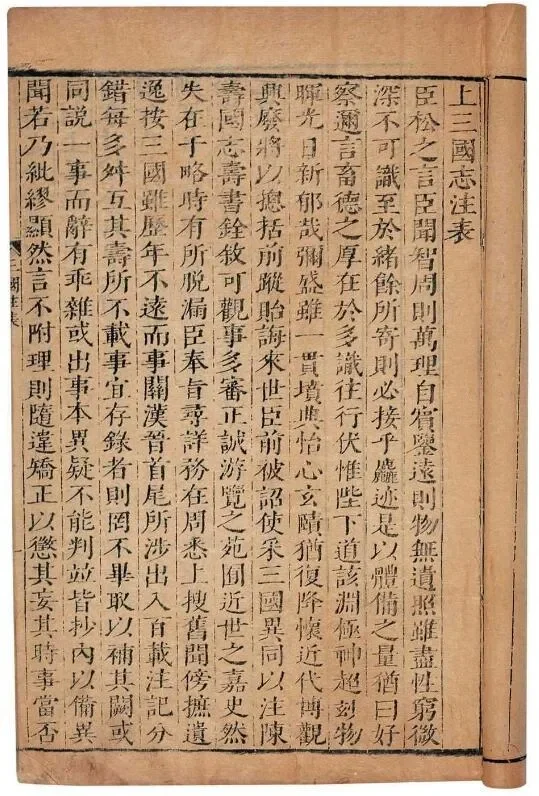 上三國志注表
臣松之言臣聞智周則萬理自賓鑒遠則物無遺照雖盡性窮微
深不可識至於緒餘所寄則必接乎麤迹是以體備之量猶曰好
察邇言畜德之厚在於多識往行伏惟陛下道該淵極神超玅物
暉光日新郁哉彌盛雖一貫墳典怡心玄賾猶復降懷近代博觀
興廢將以摠括前蹤貽誨來世臣前被詔使采三國異同以注陳
壽國志壽書銓敘可觀事多審正誠游覽之苑囿近世之嘉史然
失在于略時有所脫漏臣奉旨尋詳務在周悉上搜舊聞傍摭遺
逸按三國雖歷年不遠而事關漢晉首尾所涉出入百載注記分
錯每多舛互其壽所不載事宜存錄者則罔不畢取以補其闕或
同說一事而辭有乖雜或出事本異疑不能判竝皆抄內以備異
聞若乃紕繆顯然言不附理則隨違矯正以懲其妄其時事當否
國注表